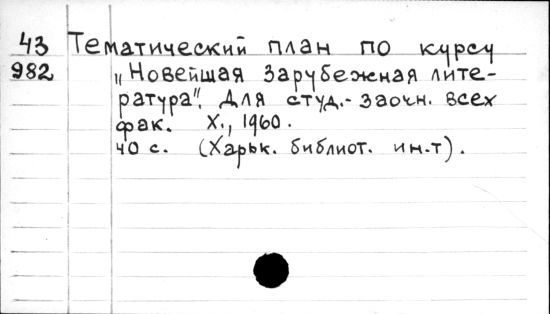 43 Тематический план по курсу
982 „Новейшая зарубежная лите-
ратура". Для студ.-заочн. всех
фак. Х., 1960.
40 с. (Харьк. библиот. ин.т).